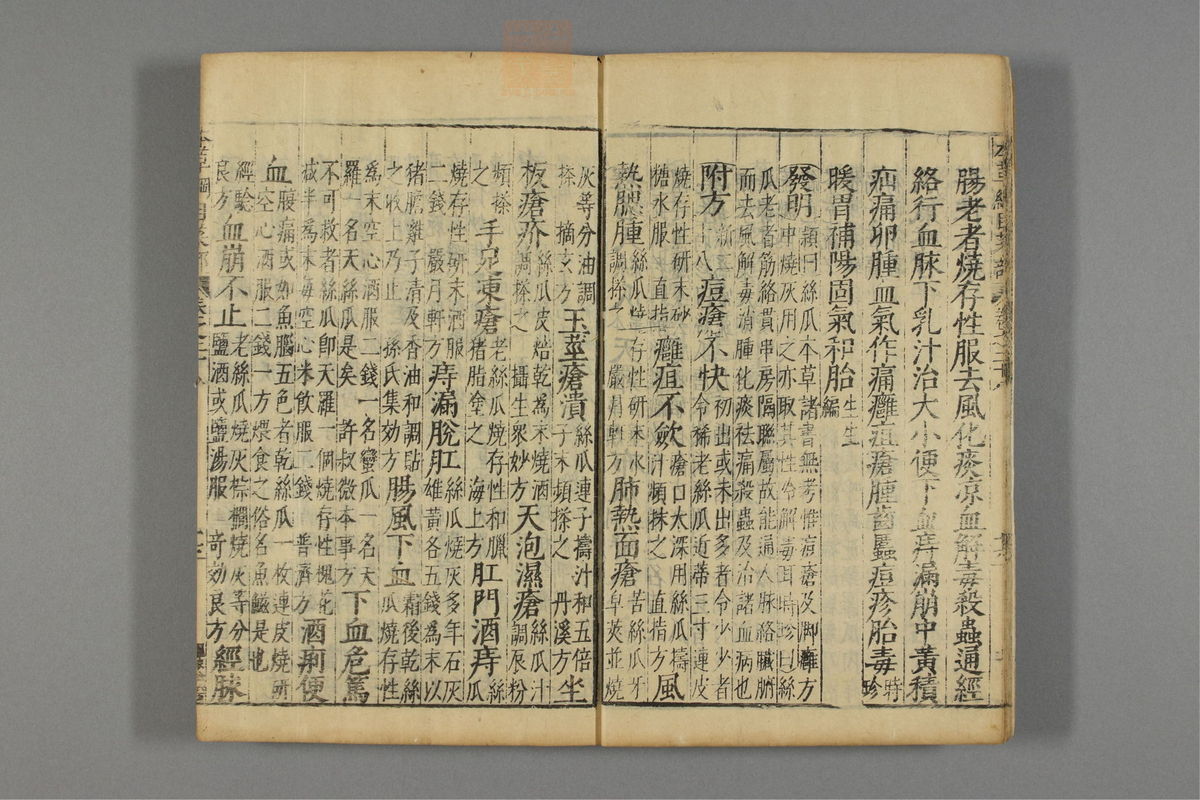 腸老者燒存性服去風化痰凉血解毒殺蟲通經
絡行血脉下乳汁治大小便下血痔漏崩中黃積
疝痛卵腫血氣作痛癰疽瘡腫齒䘌痘疹胎毒時珍
暖胃補陽固氣和胎生生編
發明頴曰絲瓜本草諸書無考惟痘瘡及脚癰方
中燒灰用之亦取其性冷解毒耳時珍曰絲
瓜老者筋絡貫串房隔聯屬故能通人脉絡臟腑
而去風解毒消腫化痰祛痛殺蟲及治諸血病也
附方
痘瘡不快初出或未出多者令少少者
令稀老絲瓜近蒂三寸連皮
燒存性研末砂
糖水服直指
癰疽不斂瘡口太深用絲瓜擣
汁頻抹之直指方風
熱腮腫絲瓜燒存性研末水
調搽之嚴月軒方
肺熱面瘡苦絲瓜牙
皂莢並燒
灰等分油調
搽摘玄方
玉莖瘡潰絲瓜連子擣汁和五倍
子末頻搽之丹溪方坐
板瘡疥絲瓜皮焙乾爲末燒酒
調搽之攝生衆妙方
天泡濕瘡絲瓜汁
調辰粉
頻搽
之
手足凍瘡老絲瓜燒存性和臘
猪脂塗之海上方
肛門酒痔絲
瓜
燒存性研末酒服
二錢嚴月軒方
痔漏脫肛絲瓜燒灰多年石灰
雄黃各五錢為末以
猪膽雞子清及香油和調貼
之收上乃止孫氏集効方
腸風下血霜後乾絲
瓜燒存性
爲末空心酒服二錢一名蠻瓜一名天
羅一名天絲瓜是矣許叔微本事方
下血危篤
不可救者絲瓜即天羅一個燒存性槐花
减半爲末每空心米飲服二錢普濟方
酒痢便
血腹痛或如魚腦五色者乾絲瓜一枚連皮燒研
空心酒服二錢一方煨食之俗名魚鰦是也
經驗
良方
血崩不止老絲瓜燒灰棕櫚燒灰等分
鹽酒或鹽湯服奇効良方
經脉